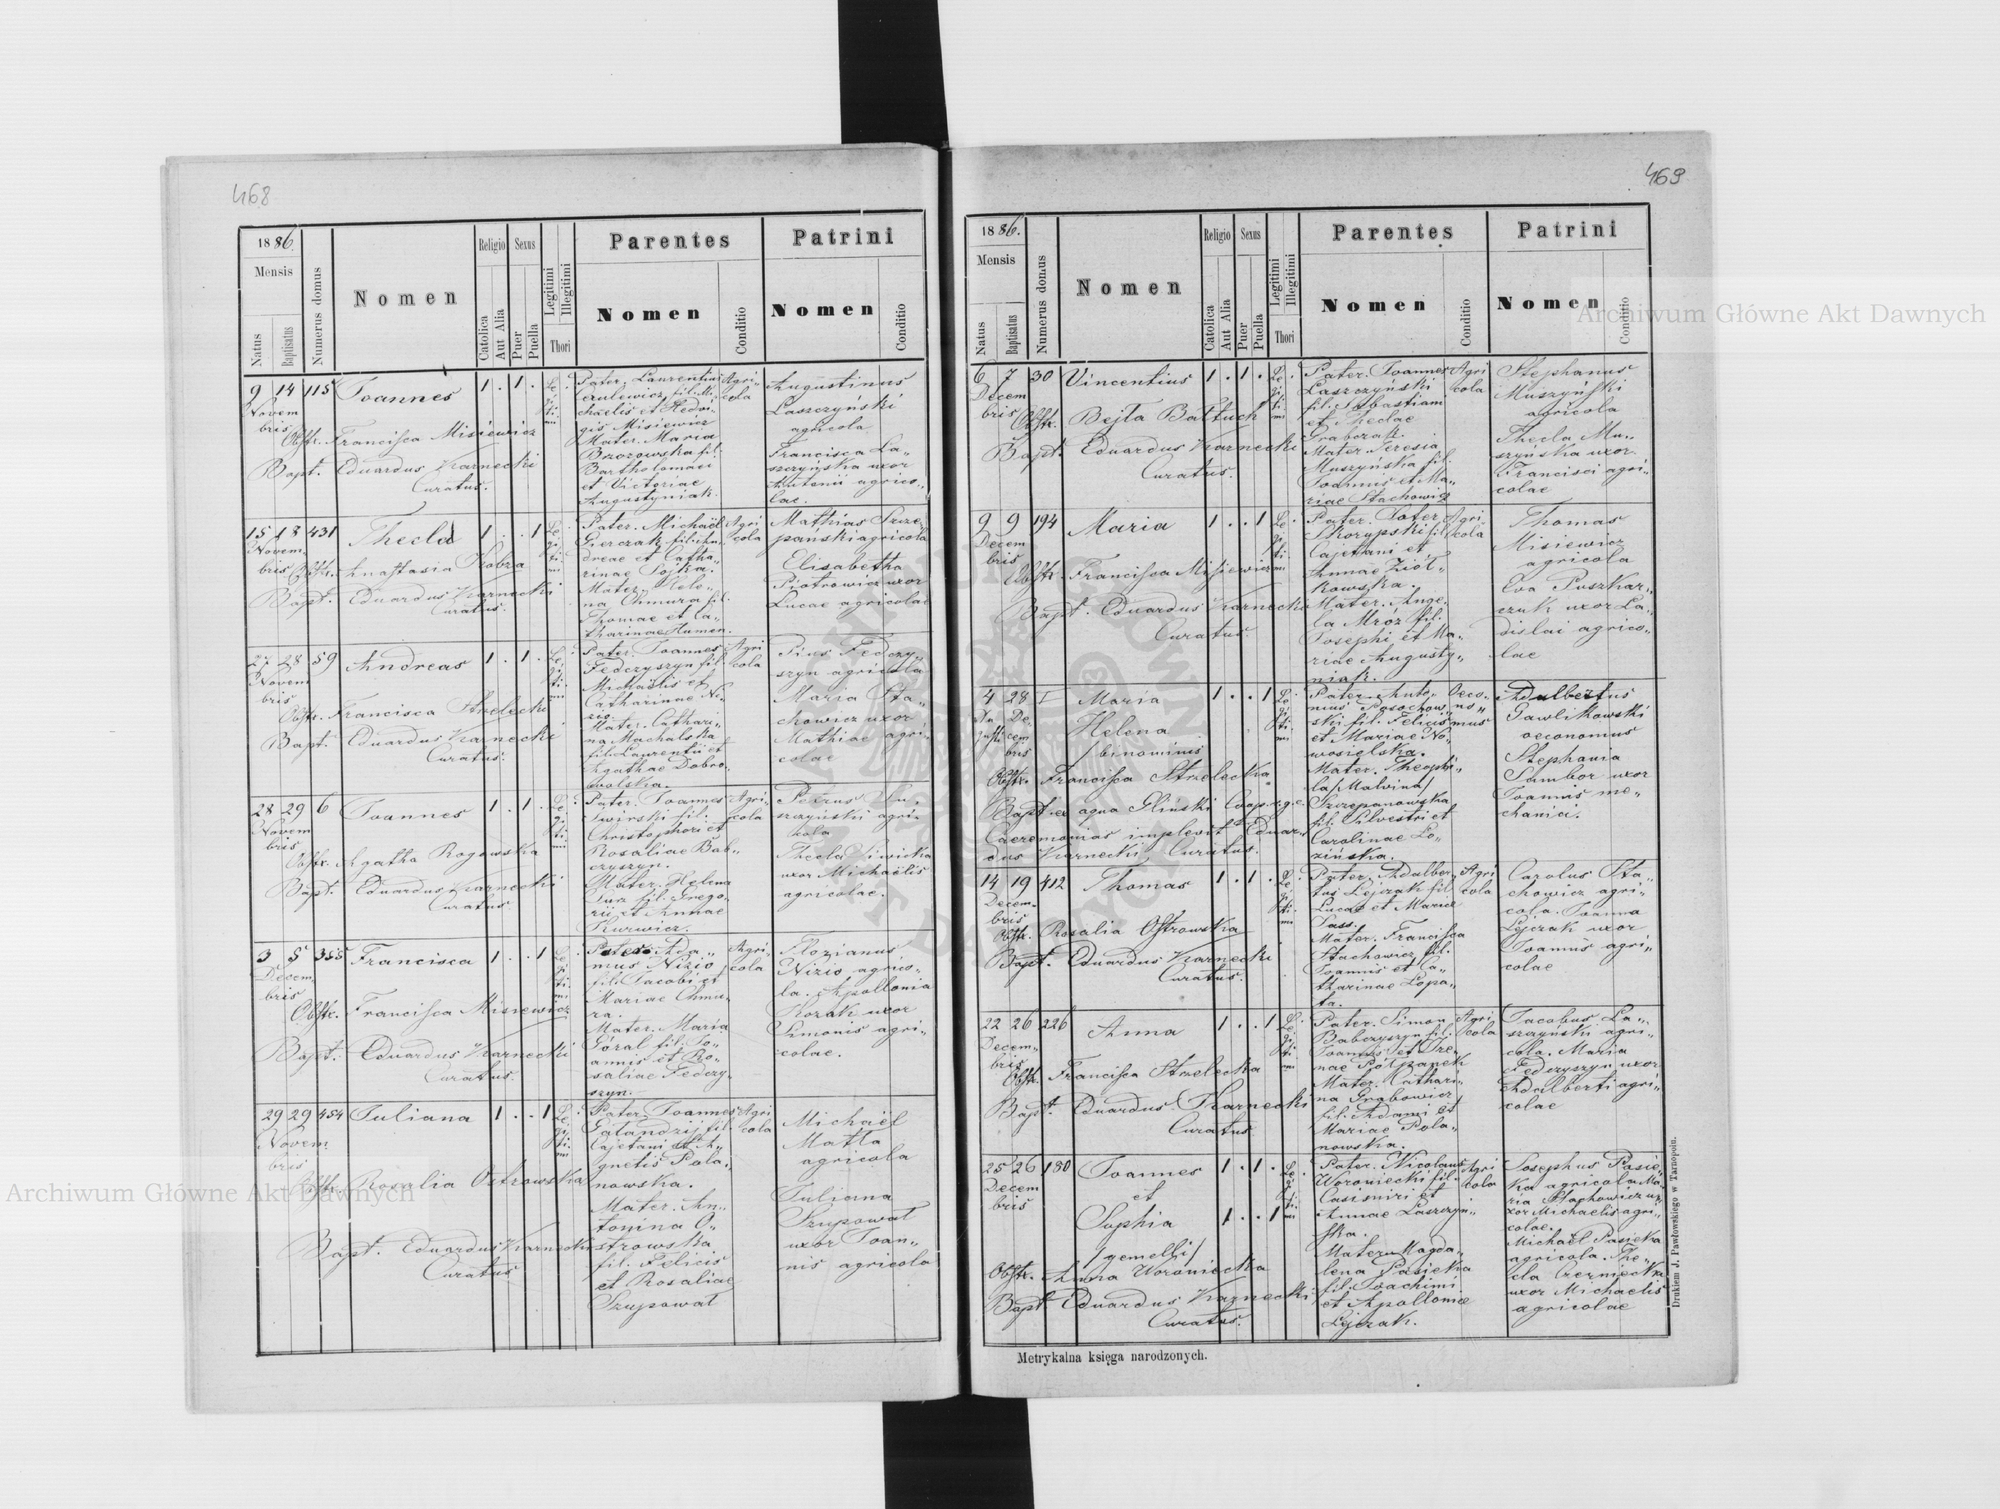 468
1886
Mensis
Natus
Baptisatus
Numerus domus
Nomen
Religio
Catolica
Aut Alia
Sexus
Puer
Puella
Legitimi
Illegitimi
Thori
Parentes
Nomen
Conditio
Patrini
Nomen
Conditio
9 14 115 Joannes 1 . 1 .
Novem
bris
Obstr. Francisca Misiewicz
Bapt. Eduardus Karnecki
Curatus.
Legitimi
Pater. Laurentius
fil. Mi
chaelis et Hedvi
gis Misiewicz
Mater. Maria
Brzozowska fil.
Bartholomaei
et Victoriae
Augustyniak.
Agri
cola
Augustinus
Laszczyński
agricola
Francisca La„
szczyńska uxor
Antonii agrico„
lae.
15 18 431 Thecla 1 . . 1
Novem
bris
Obstr. Anastasia Kobza
Bapt. Eduardus Karnecki
Curatus.
Legitimi
Pater. Michaël
Gierczak fil. An
dreae et Catha
rinae Sojka.
Mater. Hele„
na Chmura fil.
Thomae et Ca„
tharinae Humen.
Agri
cola
Mathias Szcze„
panski agricola
Elisabetha
Piotrowicz uxor
Lucae agricolae
27 28 59 Andreas 1 . 1 .
Novem
bris
Obstr. Francisca Strelecki
Bapt. Eduardus Karnecki
Curatus.
Legitimi
Pater. Joannes
Fedczyszyn fil.
Michaëlis et
Catharinae Ni„
zio.
Mater. Cathari„
na Machalska
fil. Laurentii et
Agathae Dobro„
wolska.
Agri
cola
Pius Fedczy„
szyn agricola
Maria Sta„
chowicz uxor
Mathiae agri„
colae
28 29 6 Joannes 1 . 1 .
Novem
bris
Obstr. Agatha Rogowska
Bapt. Eduardus Karnecki
Curatus
Legitimi
Pater. Joannes
Swirski fil.
Christophori et
Rosaliae Bab„
czyszyn.
Mater. Helena
Dur fil. Grego„
rii et Annae
Kurwicz.
Agri„
cola
Petrus
agri„
kola
Thecla
uxor Michaëlis
agricolae.
3 5 355 Francisca 1 . . 1
Decem„
bris
Obstr. Francisca Misiewicz
Bapt. Eduardus Karnecki
Curatus.
Legitimi
Pater. Ada„
mus Nizio
fil. Jacobi et
Mariae Chmu„
ra.
Mater. Maria
Góral fil. Jo„
annis et Ro„
saliae Fedczy„
szyn.
Agri„
cola
Florianus
Nizio agrico„
la. Apollonia
Kozak uxor
Simonis agri„
colae.
29 29 454 Juliana 1 . . 1
Novem
bris
Obstr. Rosalia Ostrowska
Bapt. Eduardus Karnecki
Curatus
Legitimi
Pater Joannes
fil.
Cajetani et A„
gnetis Pola„
nowska.
Mater. An„
tonina O„
strowska
fil. Felicis
et Rosaliae
Szupował
Agri
cola
Michaël
Matla
agricola
Juliana
Szupował
uxor Joan„
nis agricola
469
1886.
Mensis
Natus
Baptisatus
Numerus domus
Nomen
Religio
Catolica
Aut Alia
Sexus
Puer
Puella
Legitimi
Illegitimi
Thori
Parentes
Nomen
Conditio
Patrini
Nomen
Conditio
6 7 30 Vincentius 1 . 1 .
Decem
bris
Obstr. Bejla Baltuch
Bapt. Eduardus Karnecki
Curatus.
Legitimi
Pater. Joannes
Laszczyński
fil. Sebastiani
et Theclae
Grabczak.
Mater Teresia
Muszyńska fil.
Joannis et Ma„
riae Stachowicz
Agri
cola
Stephanus
Muszyński
agricola
Thecla Mu„
szyńska uxor
Francisci agri„
colae
9 9 194 Maria 1 . . 1
Decem
bris
Obstr. Francisca Misiewicz
Bapt. Eduardus Karnecki
Curatus.
Legitimi
Pater.
Skorupski fil.
Cajetani et
Annae Ziół„
kowska.
Mater. Ange„
la Mróz fil.
Josephi et Ma„
riae Augusty„
niak.
Agri
cola
Thomas
Misiewicz
agricola
Eva Puszkar„
czuk uxor La„
dislai agrico„
lae
4 28 I Maria 1 . . 1
Au
gusti
De
cem
bris
Helena
/binominis
Obstr. Francisca Strzelecka
Bapt. ex aqua Gliński Coop. r. g. c.
Caeremonias implevit Eduar„
dus Karnecki, Curatus.
Legitimi
Pater. Anto„
nius Sosochow„
ski fil. Felicis
et Mariae No„
wosielska.
Mater. Theophi„
la /Malvina/
Szczepanowska
fil. Silvestri et
Carolinae Lo„
zińska.
Oeco„
no„
mus
Adalbertus
Gawlikowski
oeconomus
Stephania
Sambor uxor
Joannis me„
chanici.
14 19 412 Thomas 1 . 1 .
Decem„
bris
Obstr. Rosalia Ostrowska
Bapt. Eduardus Karnecki
Curatus.
Legitimi
Pater. Adalber„
tus Lejczak fil
Lucae et Mariae
Dass.
Mater. Francisca
Stachowicz fil.
Joannis et Ca„
tharinae Lopa„
ta.
Agri
cola
Carolus Sta„
chowicz agri„
cola. Joanna
Lejczak uxor
Joannis agri„
colae
22 26 226 Anna 1 . . 1
Decem„
bris
Obstr. Francisca Strzelecka
Bapt. Eduardus Karnecki
Curatus
Legitimi
Pater. Simon
Babczyszyn fil.
Joannis et Ire„
nae Półpanek
Mater. Cathari„
na Grabowicz
fil. Adami et
Mariae Pola„
nowska.
Agri
cola
Jacobus La„
szczyński agri„
cola. Maria
Fedczyszyn uxor
Adalberti agri„
colae
25 26 180 Joannes 1 . 1 .
Decem
bris
et
Sophia 1 . . 1
/gemelli/
Obstr. Anna Woroniecka
Bapt. Eduardus Karnecki
Curatus.
Legitimi
Pater. Nicolaus
Woroniecki fil.
Casimiri et
Annae Laszczyń„
ska.
Mater. Magda„
lena Pasieka
fil. Joachimi
et Apolloniae
Lejczak.
Agri
cola
Josephus Pasie„
ka agricola Ma„
ria Stachowicz u„
xor Michaelis agri„
colae.
Michaël Pasieka
agricola. The„
cla Czerniecka
uxor Michaelis
agricolae
Metrykalna księga narodzonych.
Drukiem J. Pawłowskiego w Tarnopolu.
Archiwum Główne Akt Dawnych
Archiwum Główne Akt Dawnych